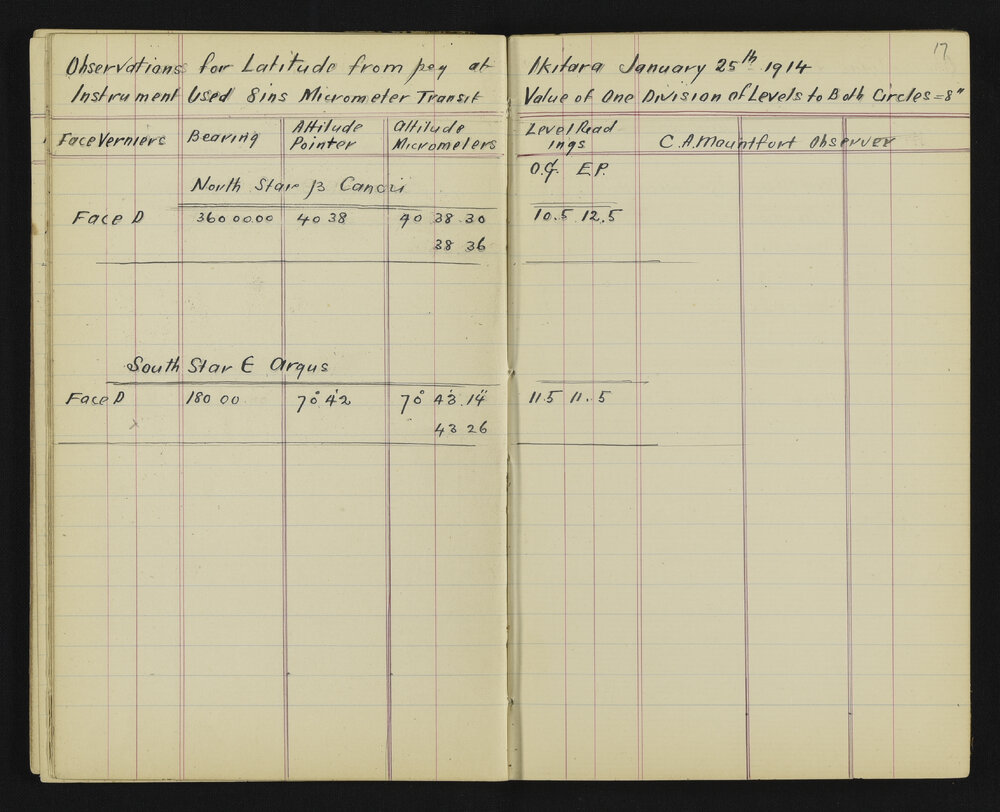 17
Observations for Latitude from peg at Ikitara January 25th 1914
Instrument Used 8ins Micrometer Transit Value of One Division of Levels to Both Circles = 8"
Face Verniers Bearing Altitude Pointer Altitude Micrometers Level Readings C. A. Mountfort Observer
O.G. E.P.
North Star β Cancri
Face D 360 00 00 40 38 40 38 30 10.5 12.5
38 36
South Star E Argus
Face D 180 00 70° 42' 70° 43' 14" 11.5 11.5
43 26